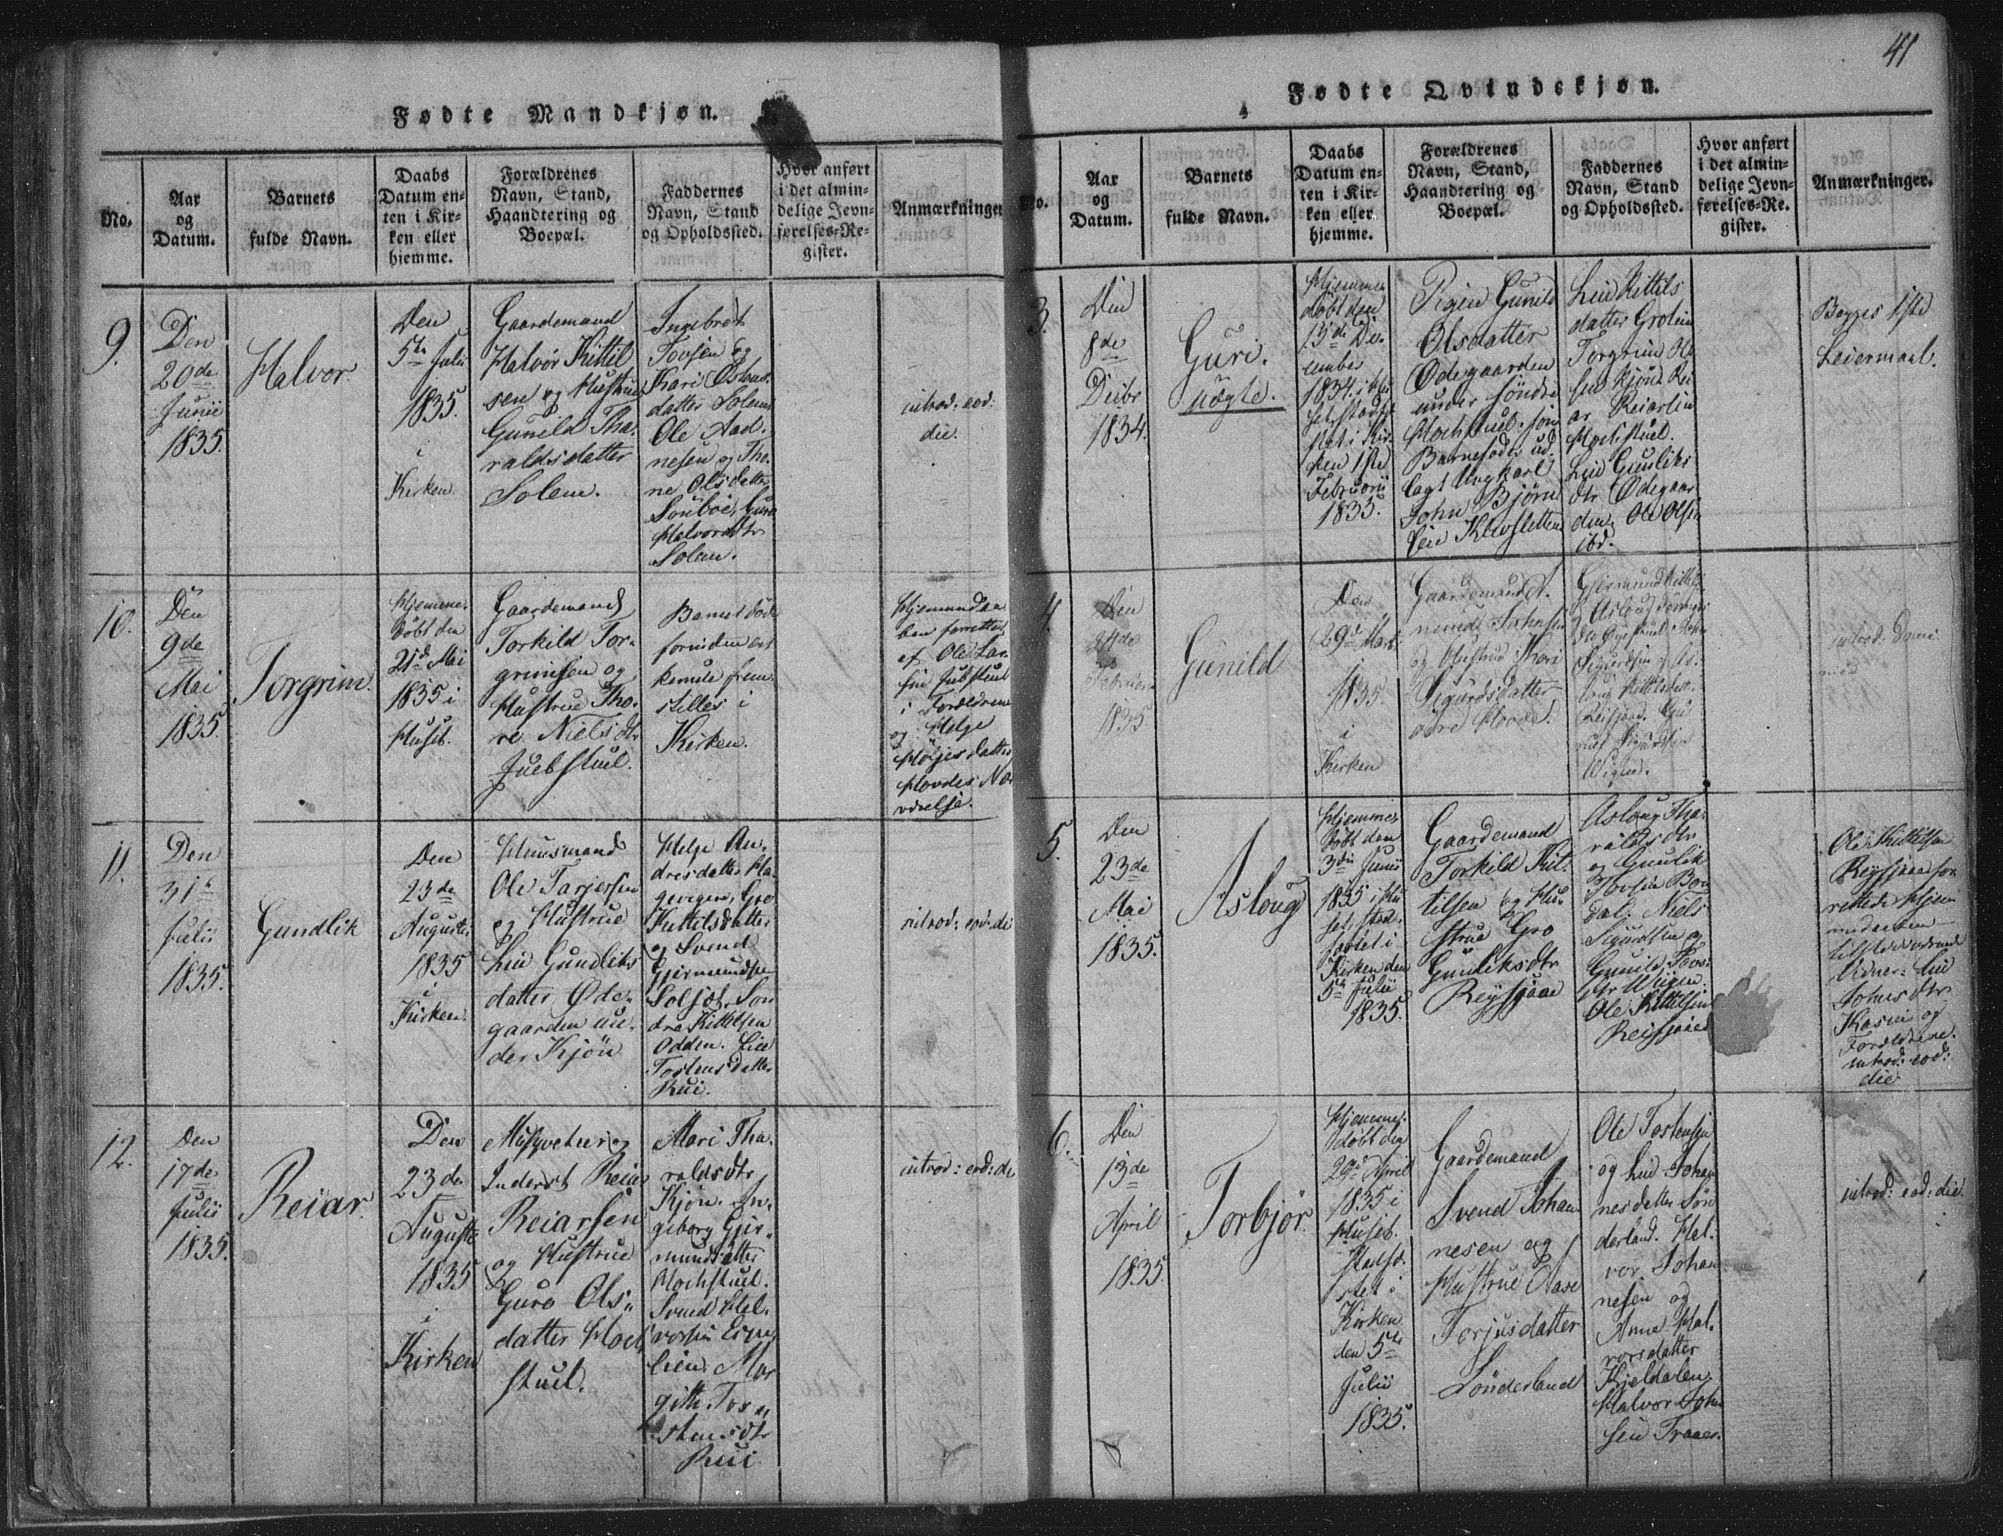 41
Fødte Mandkjøn.
No.
Aar
og
Datum.
Barnets
fulde Navn.
Daabs
Datum en-
ten i Kir-
ken eller
hjemme.
Forældrenes
Navn, Stand,
Haandtering og
Boepæl.
Faddernes
Navn, Stand
og Opholdssted.
Hvor anført
i det almin-
delige Jevn-
førelses-Re-
gister.
Anmærkninger
9.
Den
20de
Junii
1835.
Halvor.
Den
5te Julii
1835.
i
Kirken.
Gaardemand
Halvor Kittil
sen og Hustrue
Gunild Tha-
raldsdatter
Solem.
Ingebret
Tovsen og
Kari Osloug
datter Solem
Ole Aad-
nesen og Tho-
ne Olsdatter
Halvorsdtr
Solem.
introd: eod:
die.
10.
Den
9de
Mai
1835.
Torgrim.
Hjemme-
døbt den
21de Mai
1835 i
Huset.
Gaardemand
Torkild Tor-
grimsen og
Hustrue Tho-
re Nielsdtr
Juebstuel.
Barnet døde
forinden det
kunde frem-
stilles i
Kirken.
Hjemmedaa-
ben forrettet
af Ole Lar-
sen Jubstuel
i Forældrene
og Helge
datter
Hovdes Nær-
værelse.
11.
Den
31te
Julii
1835.
Gundlik
Den
23de
Auguste
1835
i
Kirken.
Huusmand
Ole Tarjersen
og Hustrue
Liv Gundliks
datter Øde-
gaarden un-
der Kjøn
Helge An-
dresdatter Ha-
gevigen, Gro
Kittilsdatter
og Svend
Gjermundsen
Solsjøt, Son
dre Kittelsen
Odden. Live
Tostensdatter
Rui.
introd: eod: die
12.
Den
17de
Julii
1835.
Reiar.
Den
23de
Auguste
1835
i
Kirken
Inderst Reiar
Reiarsen
og Hustrue
Guro Ols-
datter Hoch
stuel.
Mari Tha-
raldsdtr
Kjøn. In-
geborg Gjer-
mundsdatter
Hochstuel.
Svend Hal-
vorsen Espe-
lien. Mar
githe Tor-
stensdtr
Rui
introd: eod: die
Fødte Qvindekjøn.
No.
Aar
og
Datum.
Barnets
fulde Navn.
Daabs
Datum en-
ten i Kir-
ken eller
hjemme.
Forældrenes
Navn, Stand,
Haandtering og
Boepæl.
Faddernes
Navn, Stand
og Opholdssted.
Hvor anført
i det almin-
delige Jevn-
førelses-Re-
gister.
Anmærkninger.
3.
Den
8de
Decbr
1834.
Guri.
uægte.
Hjemme
døbt den
13de De-
cember
1834 i Hu-
set, stadfæ-
stet i Kir-
ken 1ste
Februarii
1835.
Pigen Gunild
Olsdatter
Ødegaarden
under Søndre
Hochstuel. Som
Barnefader ud-
lagt Ungkarl
John Bjørn
sen Kleivsletten
Liv Kittils
datter Grotem
Torgrim Ol-
sen Kjøn. Rei-
ar Reiarsen
Hochstuel.
Liv Gunliks
dtr Ødegaar-
den. Ole Olsen
ibd.
Begges 1ste
Leiermaal.
4.
Den
1835
Gunild
Den
29de Marts
1835
i
Kirken
Gaardemand A-
mund Johnsen
og Hustrue Kari
Sigurdsdatter
øvre Hovde.
Gjermund Kittils
Sigurdsen
Sigurdsen
Wigen.
introd: Domi
5.
Den
23de
Mai
1835.
Asloug
Hjemme-
døbt den
3die Junii
1835 i Hu-
set, stad-
fæstet i
Kirken den
5te Julii
1835.
Gaardemand
Torkild Kit-
tilsen og Hu-
strue Gro
Gunliksdtr
Reysjaae
Asloug Tha-
raldsdtr
og Gunlik
Tovsen Bon-
dal. Niels
Sigurdsen og
Gunild Tovs-
dtr Wigen.
Ole Kittilsen
Reisjaae
Ole Kittilsen
Reysjaae for-
rettede Hjem-
medaaben
Vidner: Liv
Johnsdtr
Kasin og
Forældrene.
introd: eod:
die
6.
Den
13de
April
1835.
Torbjør.
Hjemme-
døbt den
29de April
1835 i
Huset.
Stadfæ-
stet i
Kirken
den 5te
Julii
1835.
Gaardemand
Svend Johan
nesen og
Hustrue Aase
Torjusdatter
Sønderland
Ole Tostensen
og Liv Johan-
nesdatter Søn-
derland. Hal-
vor Johan-
nesen og
Anne Hal-
vorsdatter
Kjeldalen
Halvor John
sen Traaen.
introd: eod: die.